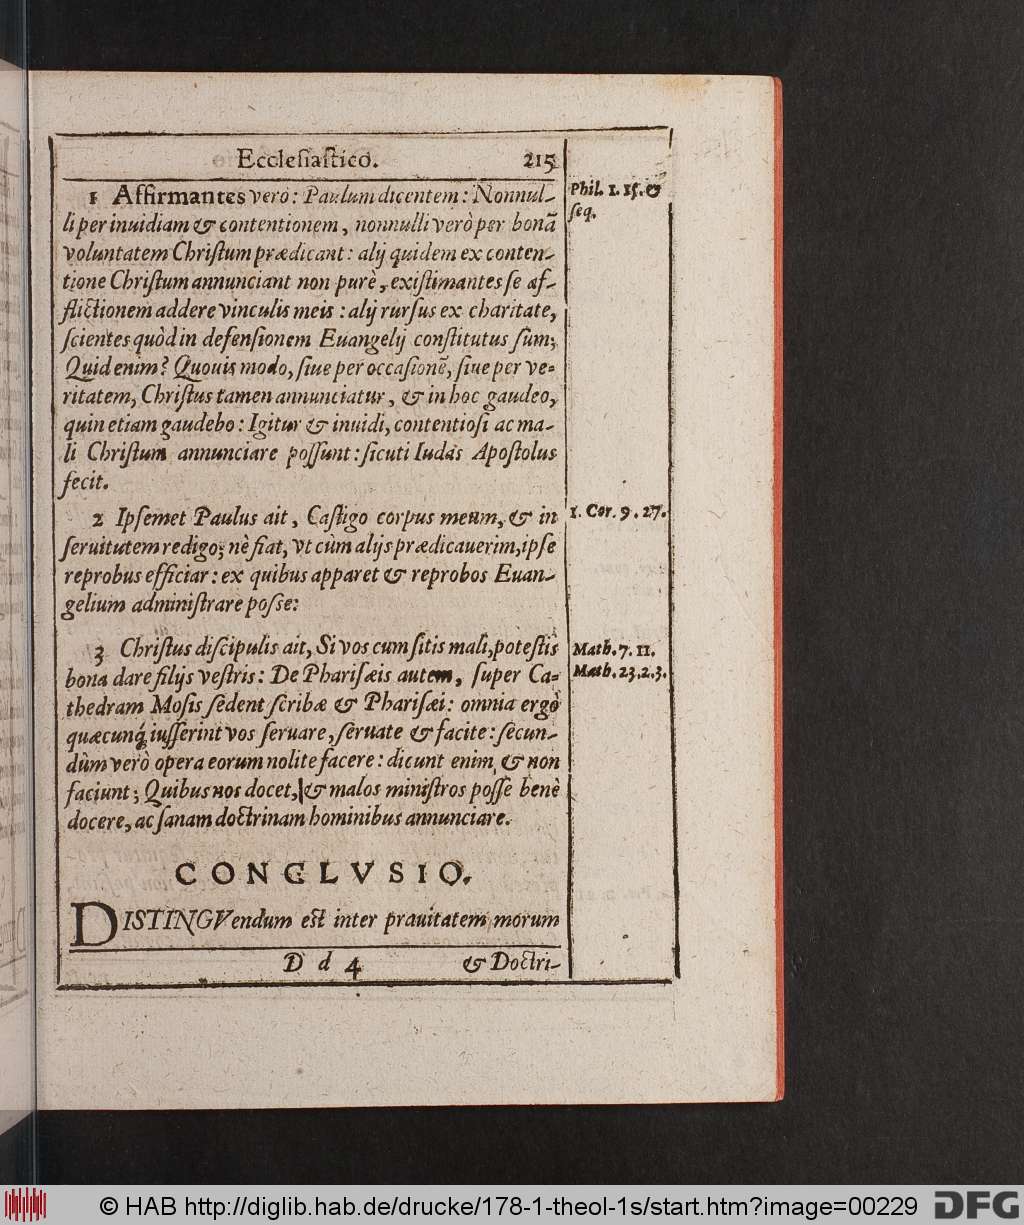 Ecclesiastico. 215
1 Affirmantes verò: Paulum dicentem: Nonnul-
li per inuidiam & contentionem, nonnulli verò per bonã
voluntatem Christum prædicant: alij quidem ex conten-
tione Christum annunciant non purè, existimantes se af-
flictionem addere vinculis meis: alij rursus ex charitate,
scientes quòd in defensionem Euangelij constitutus sum;
Quid enim? Quouis modo, siue per occasionẽ, siue per ve-
ritatem, Christus tamen annunciatur, & in hoc gaudeo,
quin etiam gaudebo: Igitur & inuidi, contentiosi ac ma-
li Christum annunciare possunt: sicuti Iudas Apostolus
fecit.
Phil. 1. 15. &
seq.
2 Ipsemet Paulus ait, Castigo corpus meum, & in
seruitutem redigo; nè fiat, vt cùm alijs prædicauerim, ipse
reprobus efficiar: ex quibus apparet & reprobos Euan-
gelium administrare posse:
1. Cor. 9. 27.
3 Christus discipulis ait, Si vos cum sitis mali, potestis
bona dare filijs vestris: De Pharisæis autem, super Ca-
thedram Mosis sedent scribæ & Pharisæi: omnia ergò
quæcunq́; iusserint vos seruare, seruate & facite: secun-
dùm verò opera eorum nolite facere: dicunt enim, & non
faciunt; Quibus nos docet, & malos ministros posse benè
docere, ac sanam doctrinam hominibus annunciare.
Math. 7. 11.
Math. 23. 2. 3.
CONCLVSIO.
DISTINGVendum est inter prauitatem morum
D d 4 & Doctri-
© HAB http://diglib.hab.de/drucke/178-1-theol-1s/start.htm?image=00229 DFG